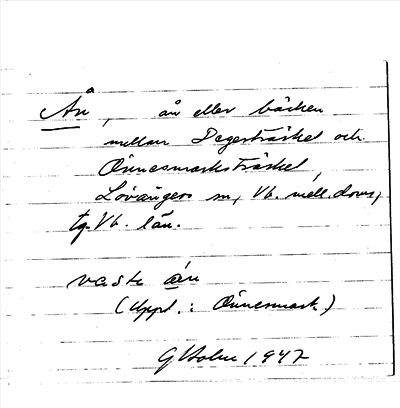 Ån, ån eller bäcken
mellan Degerträsket och
Önnesmarksträsket,
Lövångers sn, Vb. mell. doms,
Vb. län.
vaste
(Uppt. : Önnesmark)
G Holm 1947